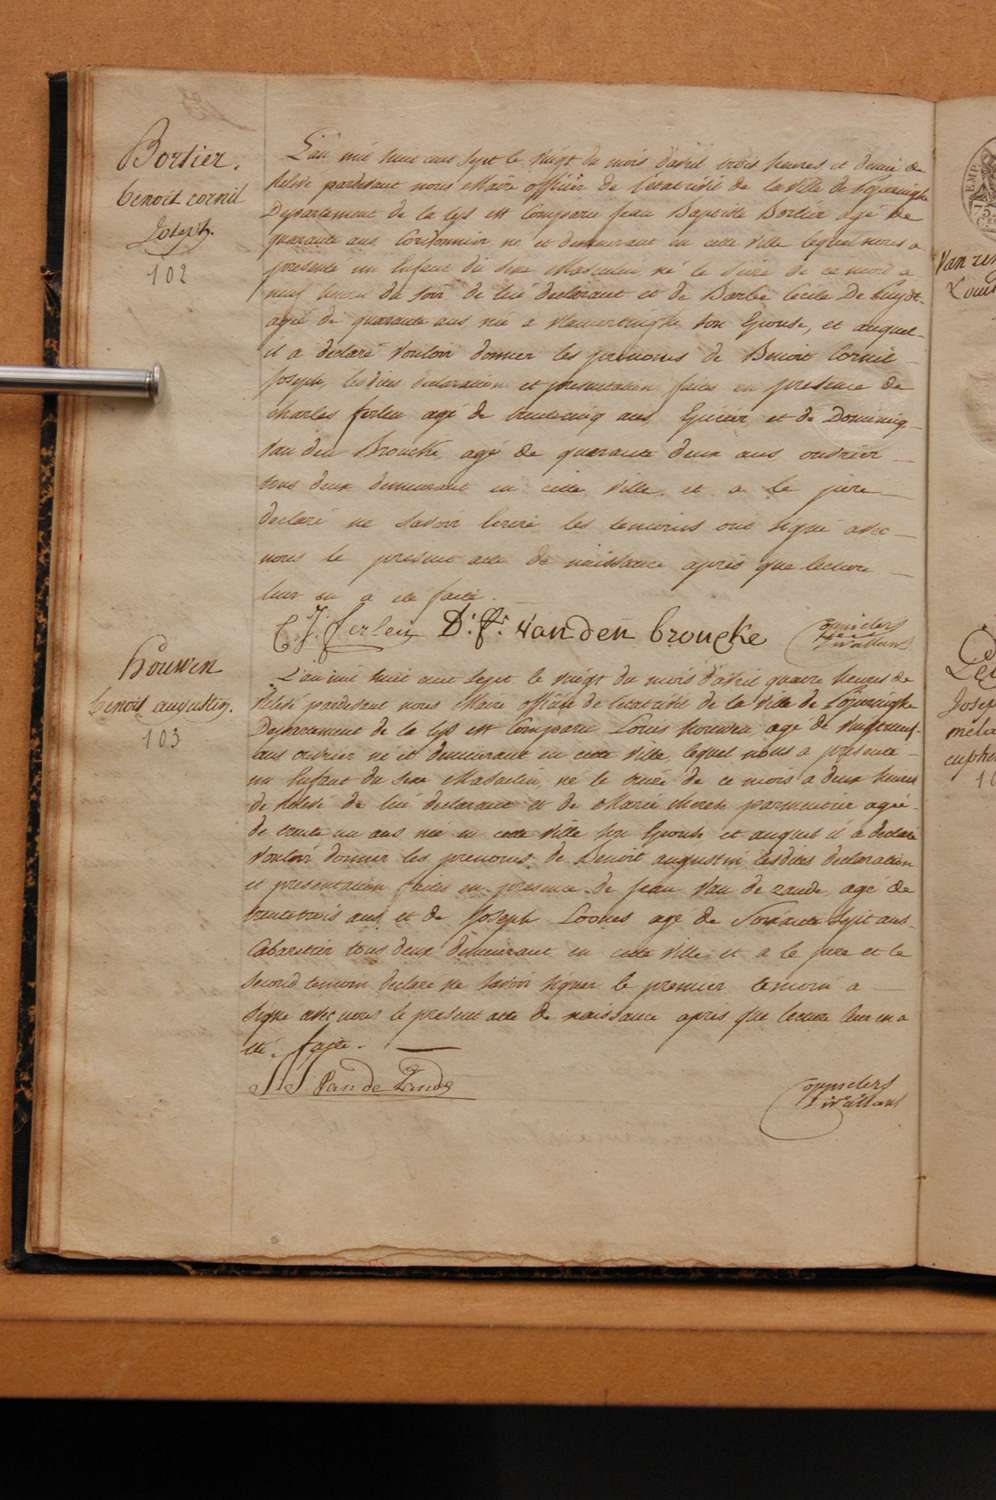 Bortier.
benoit cornil
Joseph.
102
L'an mil huit cent sept le vingt du mois d'avril trois heures et demie de
relevé pardevant nous Maire officier de l'etat civil de la ville de Poperinghe
Departement de la Lys est Comparu Jean Baptiste Bortier agé de
quarante ans Cordonnier né et demeurant en cette ville lequel nous a
presenté un Enfant du sexe Masculin né le de ce mois a
neuf heures du soir de lui declarant et de Barbe Cecile De
agée de quarante ans née a Vlamertinghe son Epouse, et auquel
il a declaré vouloir donner les prenoms de Benoit Cornil
Joseph, lesdites declaration et presentation faites en presence de
Charles ferleu agé de trentecinq ans, Epicier et de Dominiq
Van den Broucke agé de quarante deux ans ouvrier
tous deux demeurant en cette ville, et a le pere
declaré ne savoir ecrire les temoins ont signé avec
nous le present acte de naissance après que lecture
leur en a ete faite.
C. J. ferleu D: F: Van den broucke
Houwen
benoit augustin.
103
L'an mil huit cent sept le vingt du mois d'avril quatre heures de
relevé pardevant nous Maire officier de l'etat civil de la ville de Poperinghe
Departement de la Lys est Comparu Louis houwen agé de vingtneuf
ans ouvrier né et demeurant en cette ville, lequel nous a presenté
un Enfant du sexe Masculin, né le de ce mois a deux heures
de relevé de lui declarant et de Marie therese parmentier agée
de trente un ans née en cette ville son Epouse et auquel il a declaré
vouloir donner les prenoms de Benoit augustin lesdites declaration
et presentation faites en presence de Jean Van de Zande agé de
trentetrois ans, et de Joseph Loones agé de soixante sept ans
Cabaretier tous deux demeurant en cette ville, et a le pere et le
second temoin declaré ne savoir signer le premier temoin a
signé avec nous le present acte de naissance apres que lecture leur en a
eté faite.
J J Van de Zande